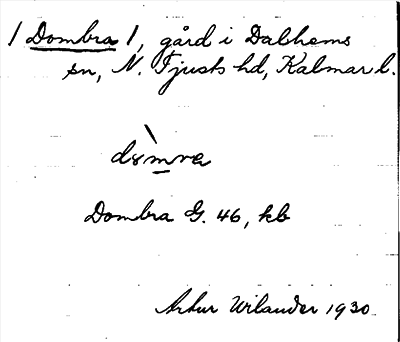 / Dombra /, gård i Dalhems
sn, N. Tjusts hd, Kalmar l.
Dombra G. 46, kb
Artur Wilander 1930